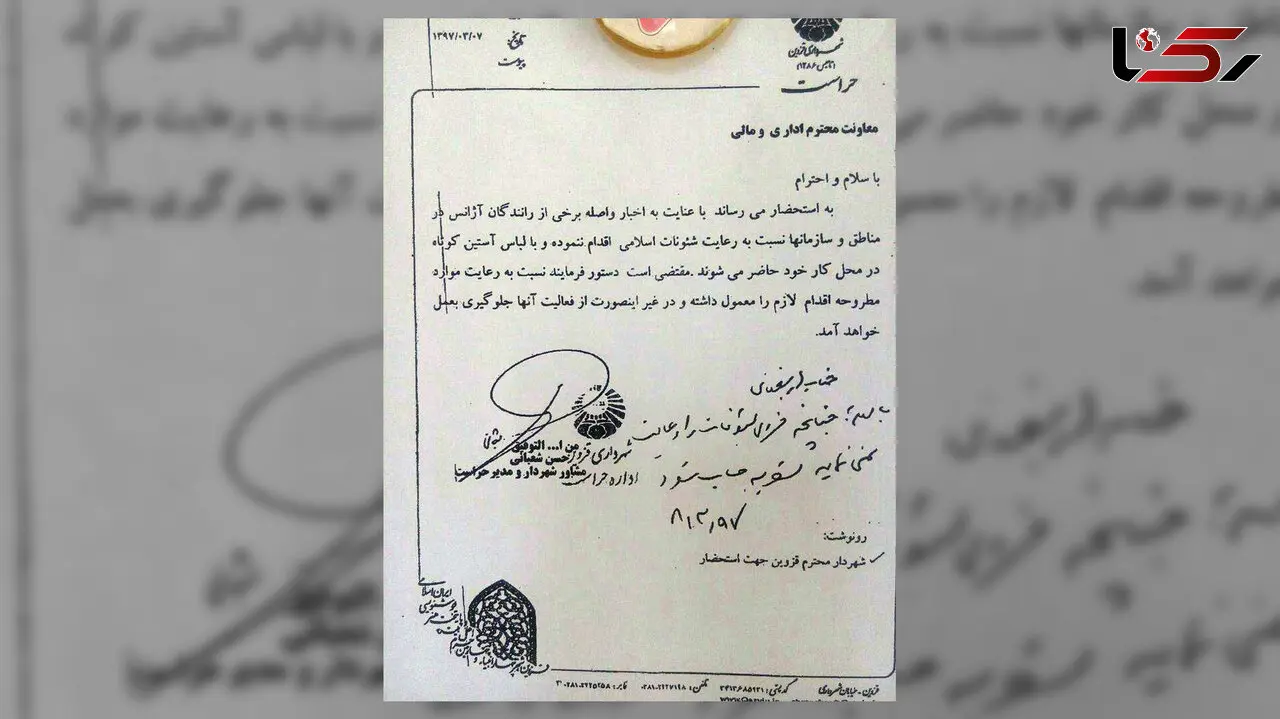 رکنا
شهرداری قزوین
(تاسیس ۱۲۸۶)
حراست
تاریخ: ۱۳۹۷/۰۳/۰۷
پیوست
معاونت محترم اداری و مالی
با سلام و احترام
به استحضار می رساند با عنایت به اخبار واصله برخی از رانندگان آژانس در
مناطق و سازمانها نسبت به رعایت شئونات اسلامی اقدام ننموده و با لباس آستین کوتاه
در محل کار خود حاضر می شوند .مقتضی است دستور فرمایند نسبت به رعایت موارد
مطروحه اقدام لازم را معمول داشته و در غیر اینصورت از فعالیت آنها جلوگیری بعمل
خواهد آمد.
چنانچه فردی شئونات را رعایت
نمی نماید تسویه حساب شود
۸/۳/۹۷
من ا... التوفیق
حسن شعبانی
مشاور شهردار و مدیر حراست
شهرداری قزوین
اداره حراست
رونوشت:
شهردار محترم قزوین جهت استحضار
قزوین - خیابان شهرداری